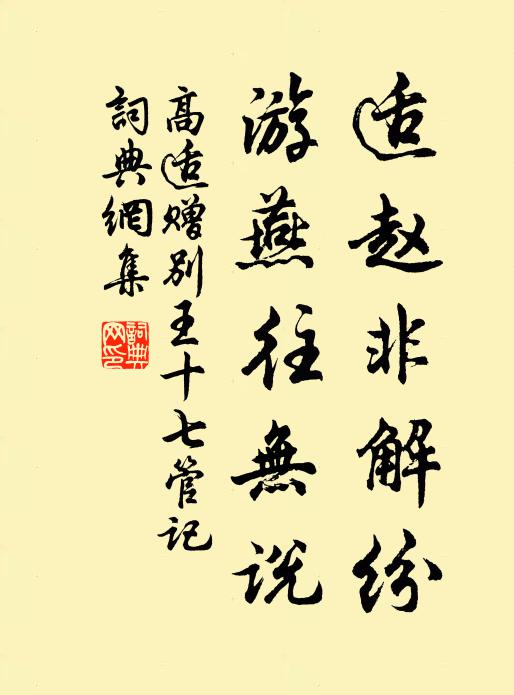 适赵非解纷
游燕往無说
高适赠别王十七管记
詞典網集
詞典
网印